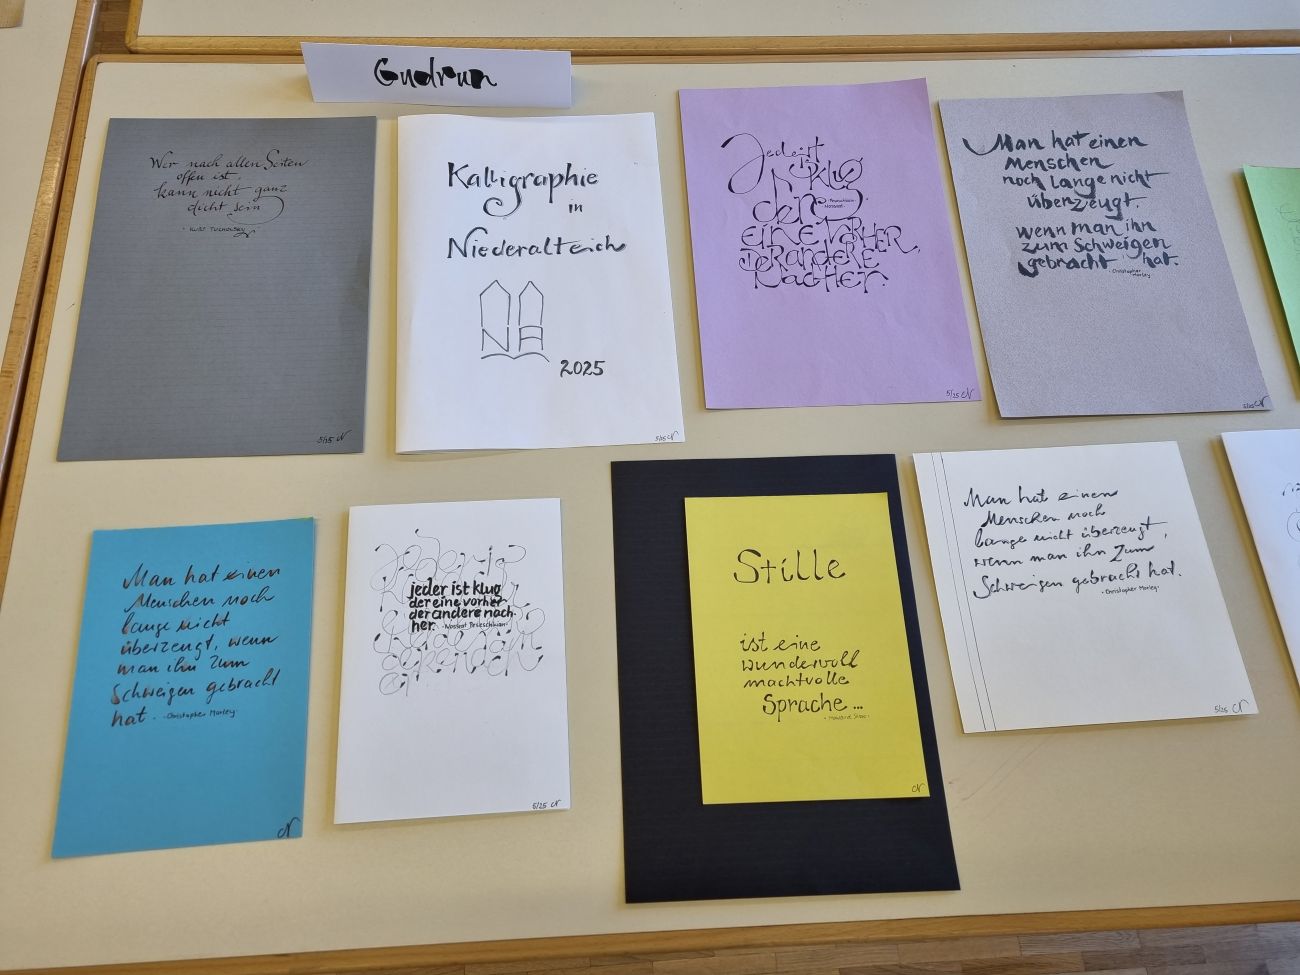 Gudrun
Wer nach allen Seiten
offen ist,
kann nicht ganz
dicht sein
- Kurt Tucholsky
5/25
Kalligraphie
in
Niederalteich
NA
2025
5/25
Jeder ist
klug
der
eine vorher,
der andere
nachher.
5/25
Man hat einen
Menschen
noch lange nicht
überzeugt,
wenn man ihn
zum Schweigen
gebracht hat.
- Christopher
Morley
5/25
Man hat einen
Menschen noch
lange nicht
überzeugt, wenn
man ihn zum
Schweigen gebracht
hat. - Christopher Morley-
jeder ist klug
der eine vorher
der andere nach-
her. - Nossrat Peseschkian-
5/25
Stille
ist eine
wundervoll
machtvolle
Sprache ...
Man hat einen
Menschen noch
lange nicht überzeugt,
wenn man ihn zum
Schweigen gebracht hat.
- Christopher Morley-
5/25